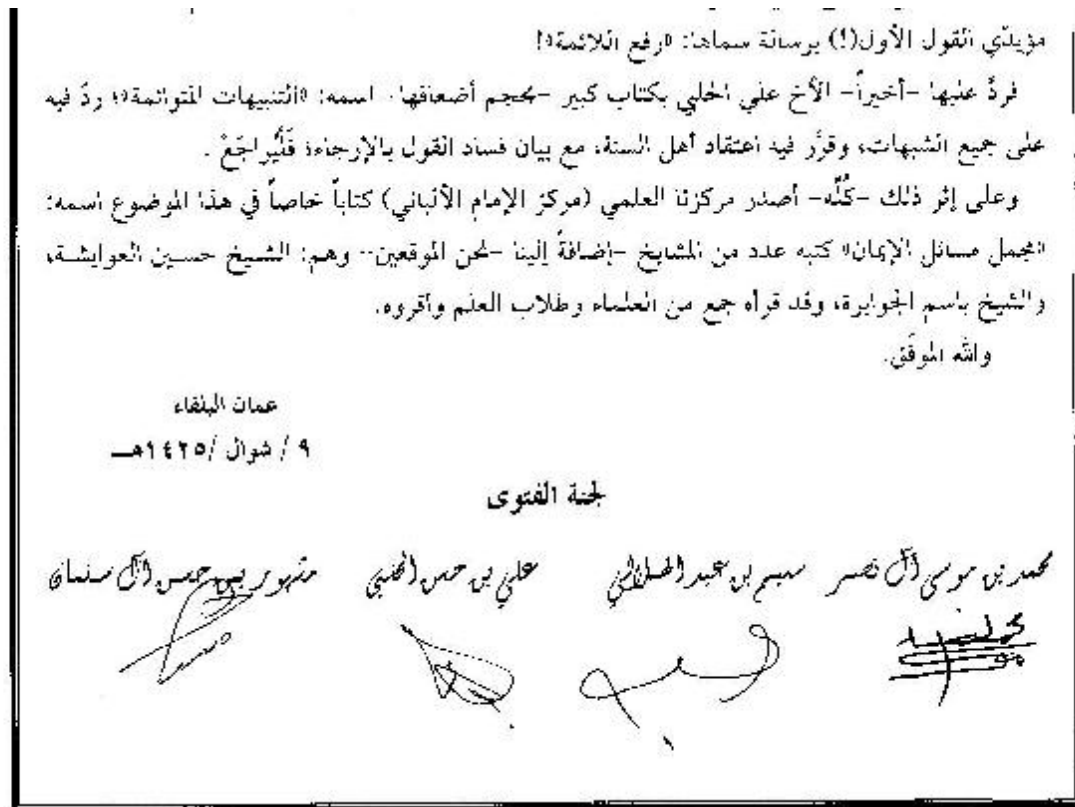 مؤيدّي القول الأول(!) برسالة سماها: «رفع اللائمة»!
فردَّ عليها -أخيراً- الأخ علي الحلبي بكتاب كبير -بحجم أضعافها- اسمه: «التنبيهات المتوائمة»؛ ردّ فيه
على جميع الشبهات، وقرَّر فيه اعتقاد أهل السنة، مع بيان فساد القول بالإرجاء؛ فَلْيُراجَعْ.
وعلى إثر ذلك -كُلّه- أصدر مركزنا العلمي (مركز الإمام الألباني) كتاباً خاصاً في هذا الموضوع اسمه:
«مجمل مسائل الإيمان» كتبه عدد من المشايخ -إضافةً إلينا -نحن الموقعين-- وهم: الشيخ حسين العوايشة،
والشيخ باسم الجوابرة، وقد قرأه جمع من العلماء وطلاب العلم وأقروه.
والله الموفِّق.
عمان البلقاء
٩ / شوال /١٤٢٥هـ
لجنة الفتوى
محمد بن موسى آل نصر سليم بن عيد الهلالي علي بن حسن الحلبي مشهور بن حسن آل سلمان